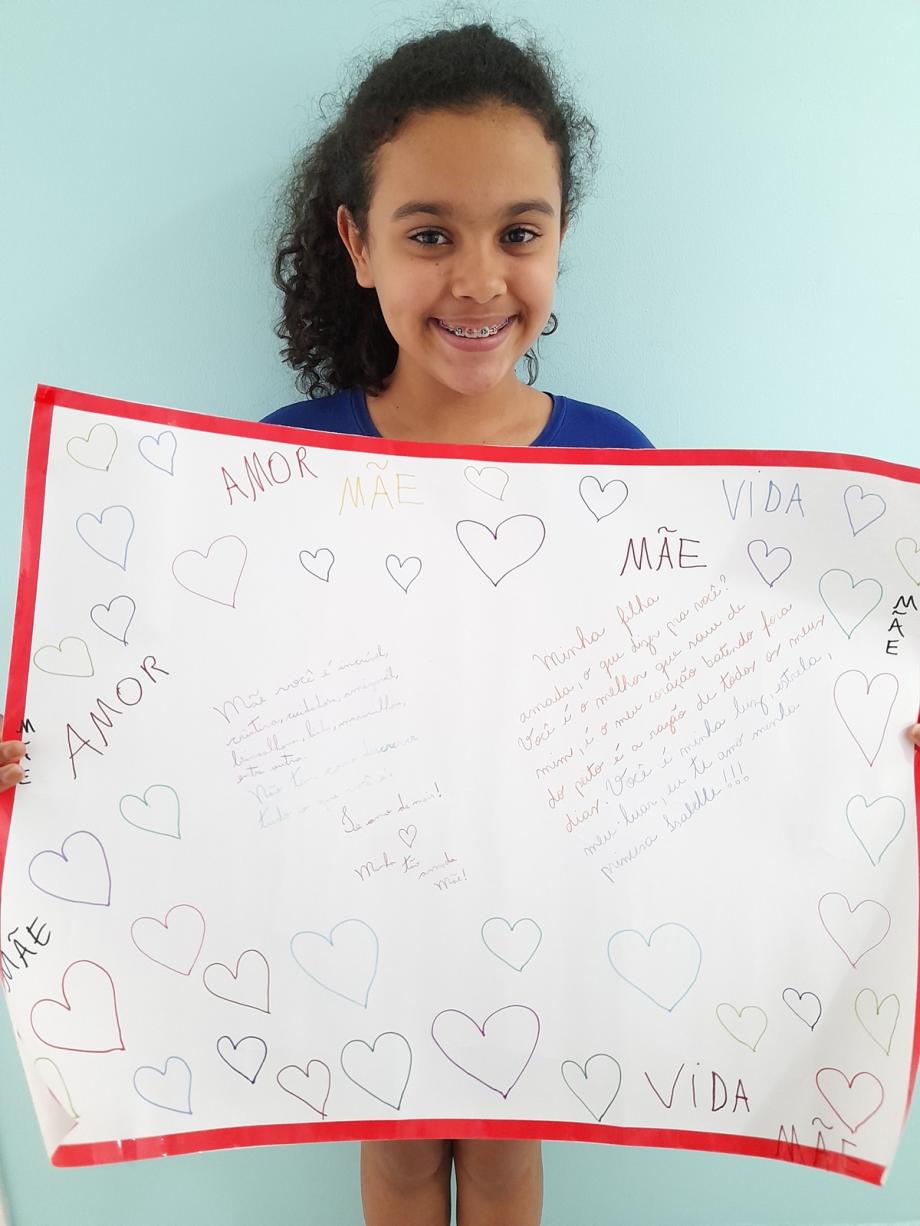 AMOR
MÃE
VIDA
MÃE
MÃE
AMOR
MÃE
Mãe você é incrível,
criativa, cuidadora, amigável,
brincalhona, linda, maravilhosa,
entre outros.
Não tem como descrever
tudo o que você é!
Te amo demais!
Minha tão amada
Mãe!
Minha filha
amada, o que dizer pra você?
Você é o melhor que saiu de
mim, é o meu coração batendo fora
do peito é a razão de todos os meus
dias. Você é minha luz, estrela,
meu luar, eu te amo minha
princesa Isabelle!!!
MÃE
VIDA
MÃE